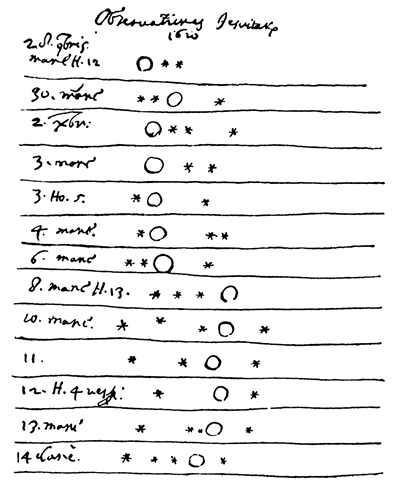 Observationes Iesuitarũ
1610
2. d. 9bris
mane H. 12
30. mane
2. Xbri:
3. mane
3. Ho. 5.
4. mane.
6. mane
8. mane H. 13.
10. mane.
11.
12. H. 4 vesp:
13. mane
14